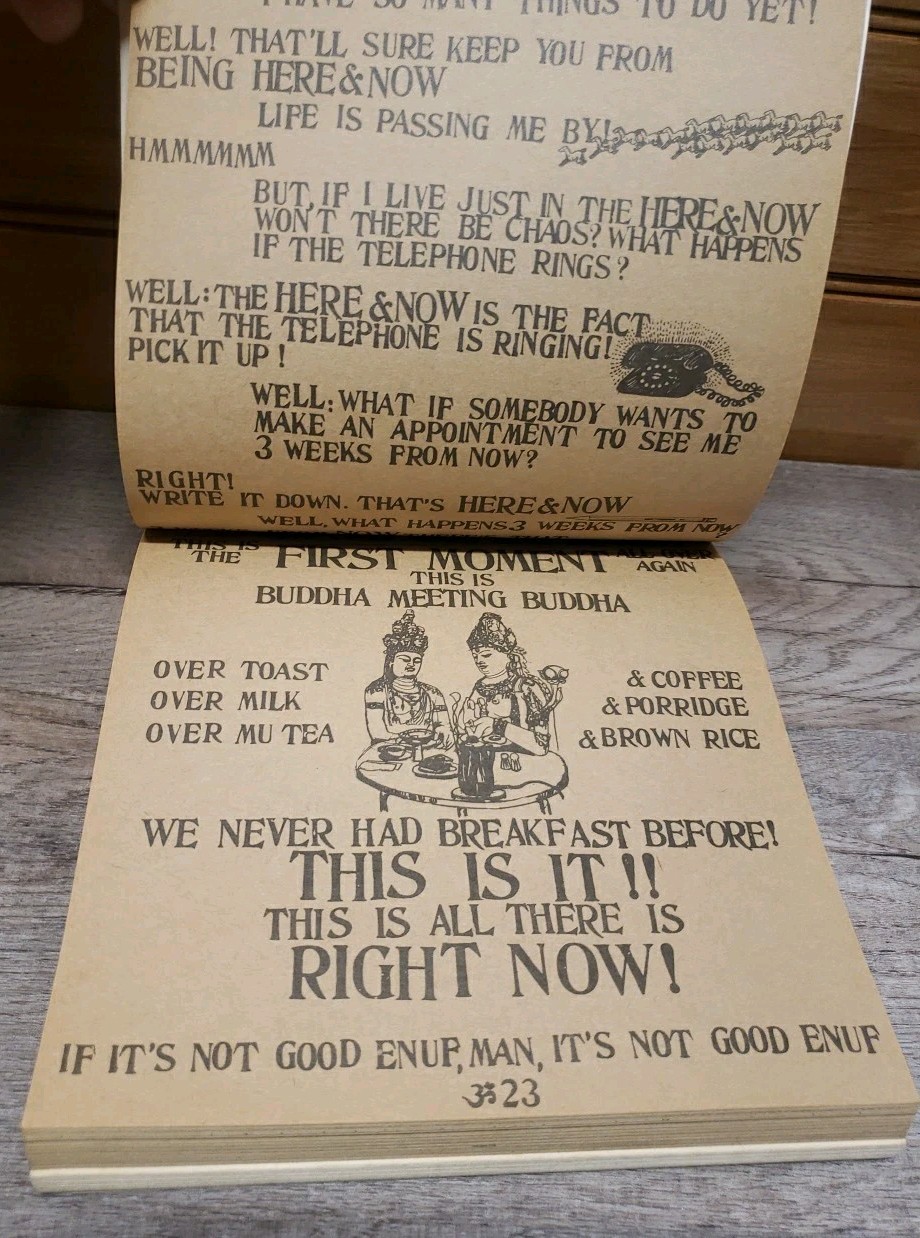 I HAVE SO MANY THINGS TO DO YET!
WELL! THAT'LL SURE KEEP YOU FROM
BEING HERE&NOW
LIFE IS PASSING ME BY!
HMMMMMM
BUT, IF I LIVE JUST IN THE HERE&NOW
WON'T THERE BE CHAOS? WHAT HAPPENS
IF THE TELEPHONE RINGS?
WELL: THE HERE &NOW IS THE FACT
THAT THE TELEPHONE IS RINGING!
PICK IT UP!
WELL: WHAT IF SOMEBODY WANTS TO
MAKE AN APPOINTMENT TO SEE ME
3 WEEKS FROM NOW?
RIGHT!
WRITE IT DOWN. THAT'S HERE&NOW
WELL, WHAT HAPPENS 3 WEEKS FROM NOW?
THIS IS
THE FIRST MOMENT ALL OVER
AGAIN
THIS IS
BUDDHA MEETING BUDDHA
OVER TOAST & COFFEE
OVER MILK & PORRIDGE
OVER MU TEA & BROWN RICE
WE NEVER HAD BREAKFAST BEFORE!
THIS IS IT!!
THIS IS ALL THERE IS
RIGHT NOW!
IF IT'S NOT GOOD ENUF, MAN, IT'S NOT GOOD ENUF
ॐ 23